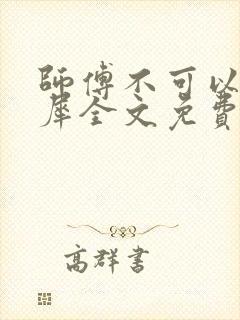 師傅不可以
犀全文免費
高群書